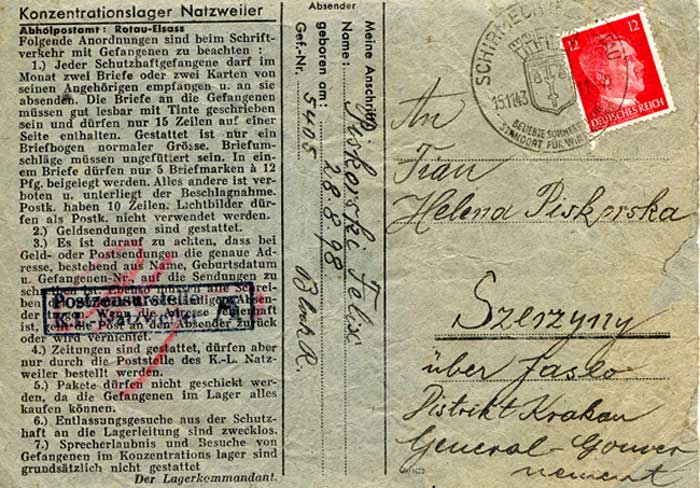 Konzentrationslager Natzweiler
Abholpostamt: Rotau-Elsass
Folgende Anordnungen sind beim Schrift-
verkehr mit Gefangenen zu beachten:
1.) Jeder Schutzhaftgefangene darf im
Monat zwei Briefe oder zwei Karten von
seinen Angehörigen empfangen u. an sie
absenden. Die Briefe an die Gefangenen
müssen gut lesbar mit Tinte geschrieben
sein und dürfen nur 15 Zeilen auf einer
Seite enthalten. Gestattet ist nur ein
Briefbogen normaler Grösse. Briefum-
schläge müssen ungefüttert sein. In ein-
em Briefe dürfen nur 5 Briefmarken à 12
Pfg. beigelegt werden. Alles andere ist ver-
boten u. unterliegt der Beschlagnahme.
Postk. haben 10 Zeilen. Lichtbilder dür-
fen als Postk. nicht verwendet werden.
2.) Geldsendungen sind gestattet.
3.) Es ist darauf zu achten, dass bei
Geld- oder Postsendungen die genaue Ad-
resse, bestehend aus Name, Geburtsdatum
u. Gefangenen-Nr., auf die Sendungen zu
schreiben ist. Ebenso müssen alle Schrei-
ben Absen-
der Wenn die Adresse fehlerhaft
ist, geht die Post an den Absender zurück
oder wird vernichtet.
4.) Zeitungen sind gestattet, dürfen aber
nur durch die Poststelle des K.-L. Natz-
weiler bestellt werden.
5.) Pakete dürfen nicht geschickt wer-
den, da die Gefangenen im Lager alles
kaufen können.
6.) Entlassungsgesuche aus der Schutz-
haft an die Lagerleitung sind zwecklos.
7.) Sprecherlaubnis und Besuche von
Gefangenen im Konzentrations lager sind
grundsätzlich nicht gestattet
Der Lagerkommandant.
Postzensurstelle
K.L. Natzweiler
Absender
Meine Anschrift:
Name: Piskorski Felix
geboren am: 28.8.98
Gef.-Nr. 5405 Block R.
SCHIRMECK
15.11.43
BELIEBTE SOMMER
STANDORT FÜR WIN
12 12
DEUTSCHES REICH
An
Frau
Helena Piskorska
Szerzyny
über Jaslo
Distrikt Krakau
General-Gouver
nement